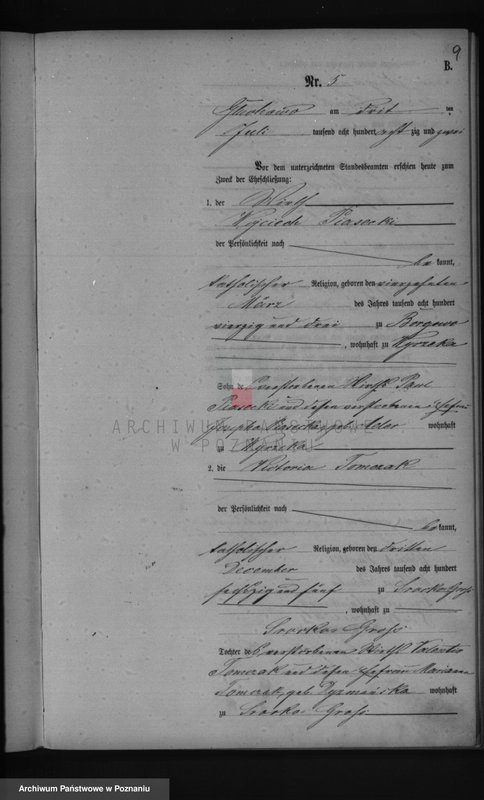 9
B.
Nr. 5
Gluchowo am drit ten
Juli tausend acht hundert acht zig und zwei
Vor dem unterzeichneten Standesbeamten erschien heute zum
Zweck der Eheschließung:
1. der Wirth
Wojciech Piasecki
der Persönlichkeit nach
be kannt,
katholischer Religion, geboren den vierzehnten
März des Jahres tausend acht hundert
vierzig und drei zu Borgowo
, wohnhaft zu Wyrzeka
Sohn des verstorbenen Wirths Paul
Piasecki und dessen verstorbenen Ehefrau
geb. wohnhaft
zu Wyrzeka
2. die Victoria Tomczak
der Persönlichkeit nach
be kannt,
katholischer Religion, geboren den dritten
December des Jahres tausend acht hundert
sechszig und fünf zu Srocko Groß
, wohnhaft zu
Srocko Groß
Tochter des verstorbenen Wirths Valentin
Tomczak und dessen Ehefrau Marianna
Tomczak, geb. wohnhaft
zu Srocko Groß
ARCHIWUM PAŃSTWOWE
W POZNANIU
Archiwum Państwowe w Poznaniu